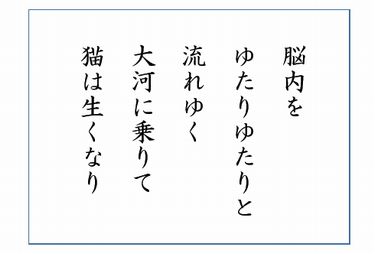 脳内を
ゆたりゆたりと
流れゆく
大河に乗りて
猫は生くなり